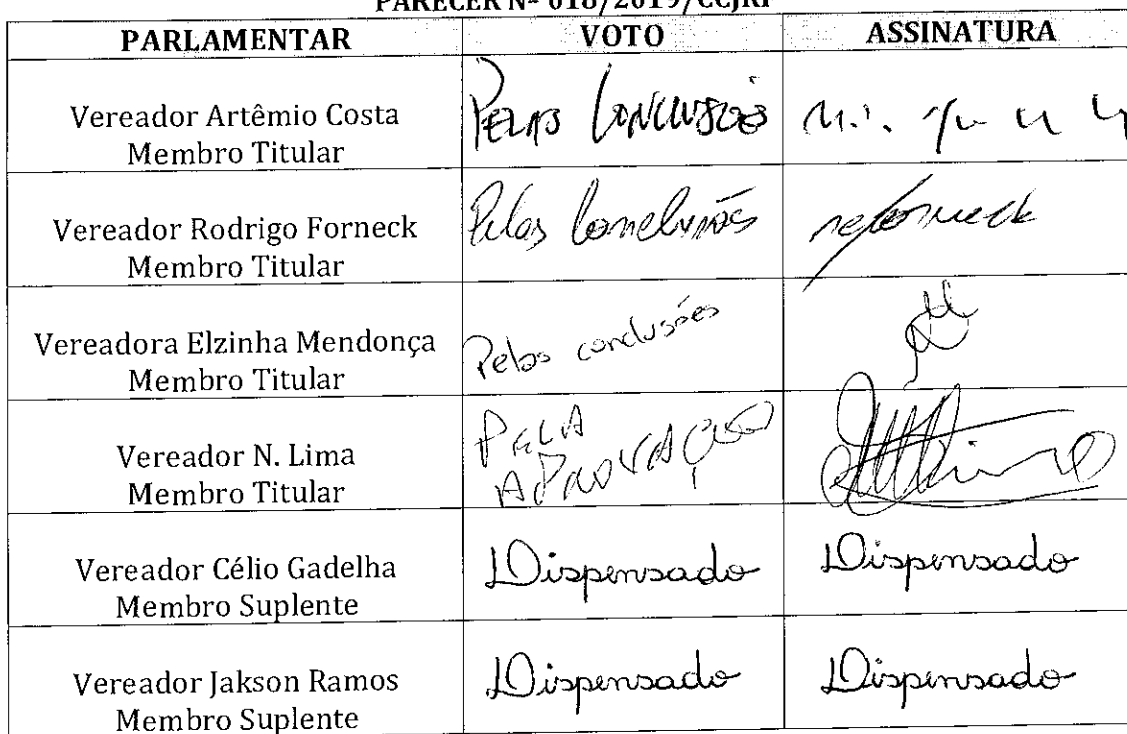 PARECER Nº 018/2019/CCJRF
PARLAMENTAR VOTO ASSINATURA
Vereador Artêmio Costa
Membro Titular
PELAS CONCLUSÕES
Vereador Rodrigo Forneck
Membro Titular
Pelas Conclusões
reforneck
Vereadora Elzinha Mendonça
Membro Titular
Pelas conclusões
Vereador N. Lima
Membro Titular
PELA
APROVAÇÃO
Vereador Célio Gadelha
Membro Suplente
Dispensado
Dispensado
Vereador Jakson Ramos
Membro Suplente
Dispensado
Dispensado